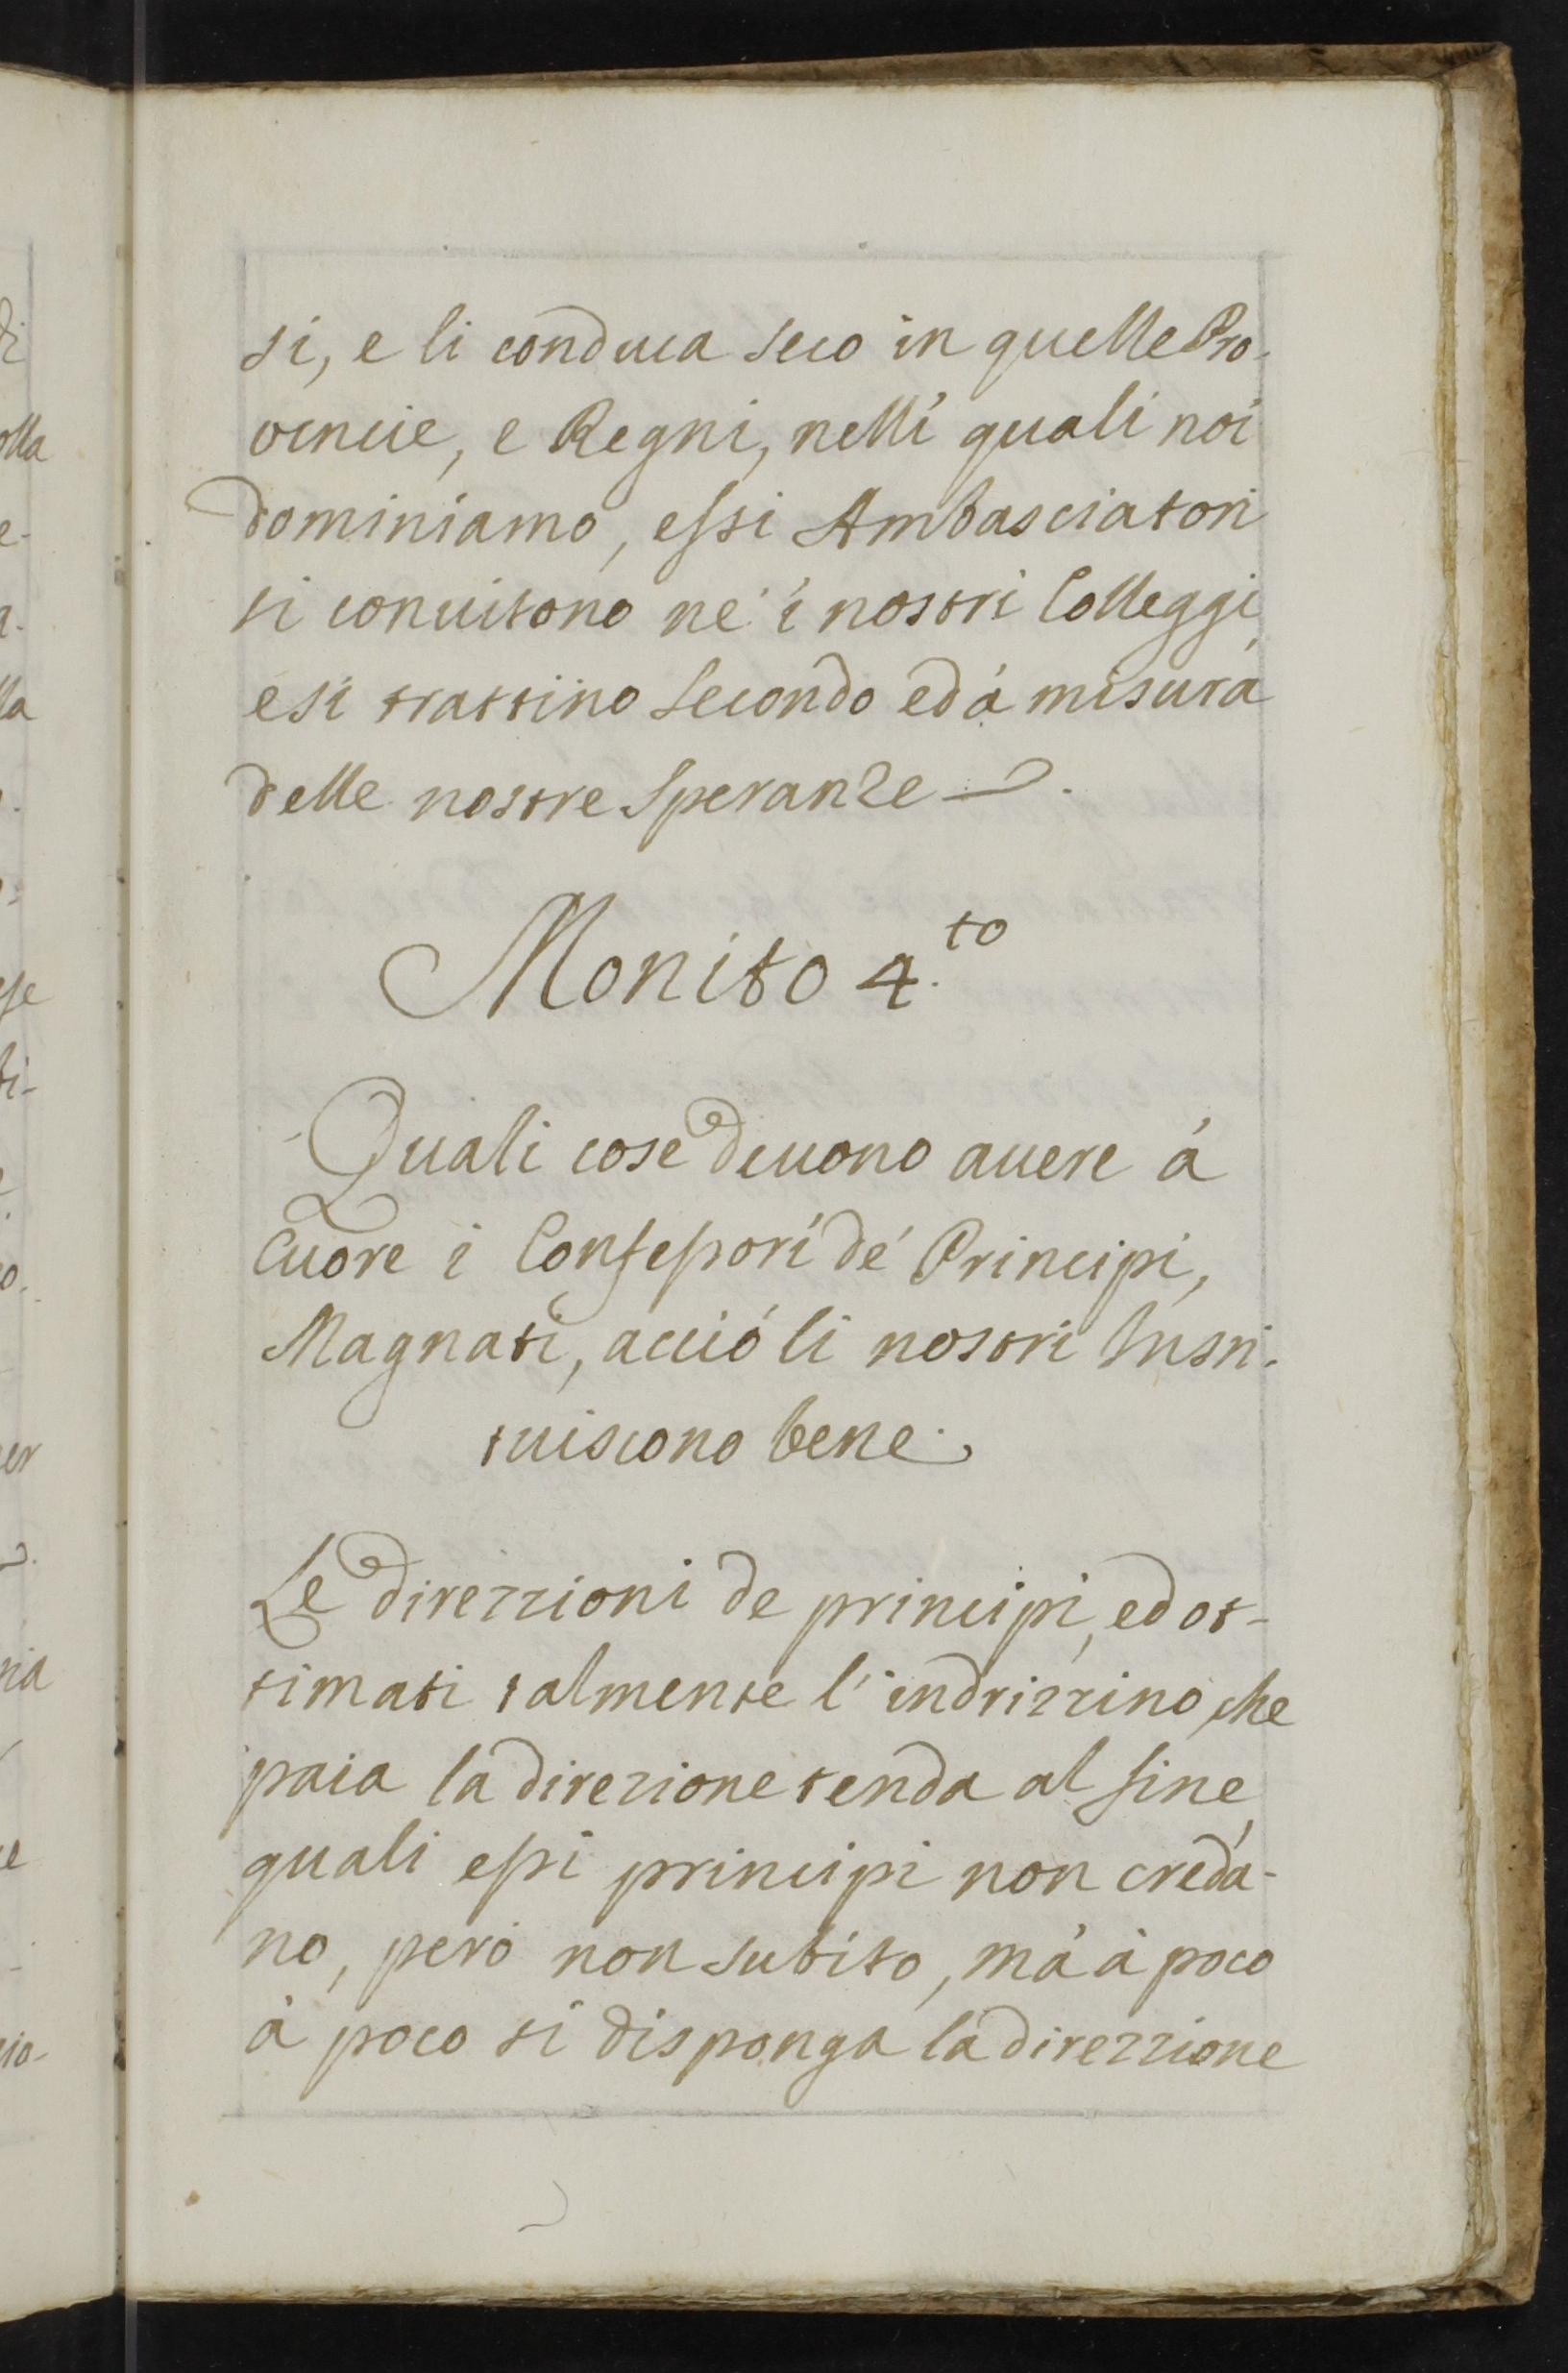 si, e li conduca seco in quelle Pro-
vincie, e Regni, nelli quali noi
dominiamo, essi Ambasciatori
si conuitono ne' i nostri Colleggi,
e si trattino secondo ed à misura
delle nostre speranze.
Monito 4.to
Quali cose deuono auere à
Cuore i Confessori de' Principi,
Magnati, acciò li nostri Insti-
tuiscono bene.
Le direzzioni de principi, ed ot-
timati talmente l'indrizzino, che
paia la direzione tenda al fine,
quali essi principi non creda-
no, però non subito, mà à poco
à poco si disponga la direzzione